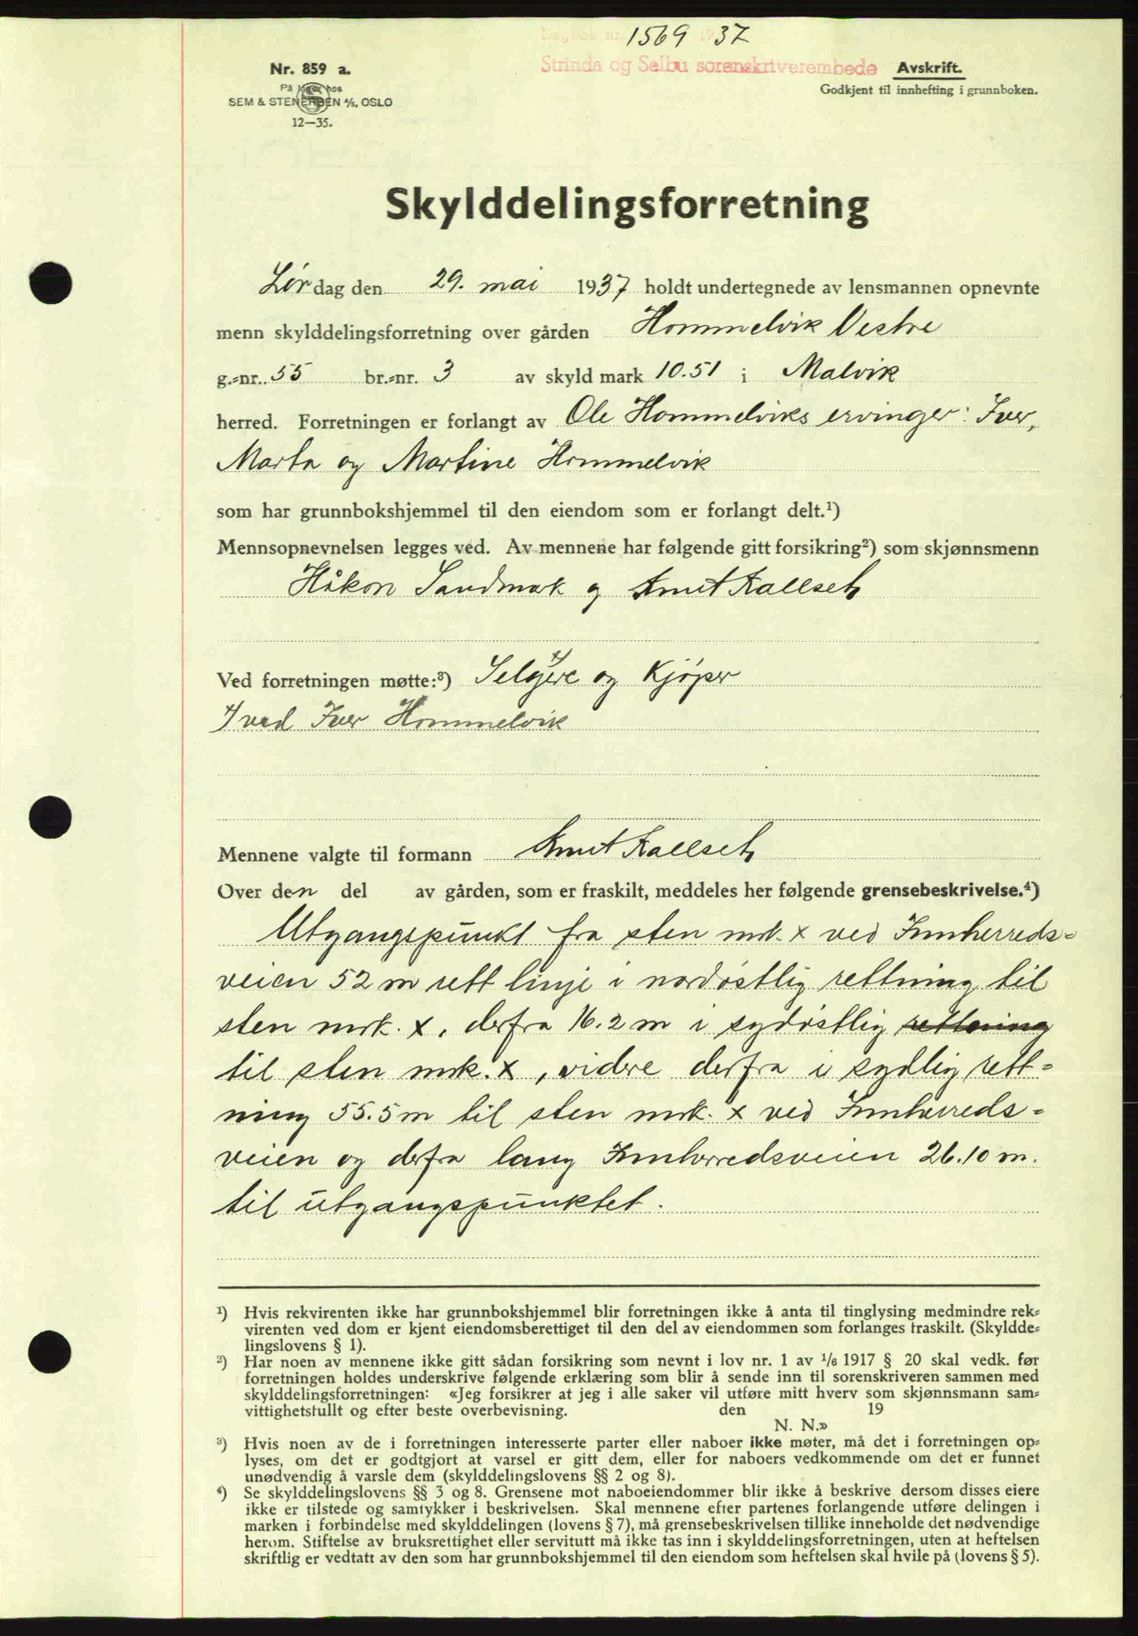 Dagbok nr. 1569 1937
Strinda og Selbu sorenskriverembede
Avskrift.
Godkjent til innhefting i grunnboken.
Nr. 859 a.
På lager hos
SEM & STENERSEN A/S, OSLO
12—35.
Skylddelingsforretning
Lørdag den 29. mai 1937 holdt undertegnede av lensmannen opnevnte
menn skylddelingsforretning over gården Hommelvik Vestre
g.-nr. 55 br.-nr. 3 av skyld mark 10.51 i Malvik
herred. Forretningen er forlangt av Ole Hommelviks arvinger: Iver,
Marta og Martine Hommelvik
som har grunnbokshjemmel til den eiendom som er forlangt delt.¹)
Mennsopnevnelsen legges ved. Av mennene har følgende gitt forsikring²) som skjønnsmenn
Håkon Sandmark og Knut
Ved forretningen møtte:³) Selgere x/ og Kjøper
x/ ved Iver Hommelvik
Mennene valgte til formann Knut
Over den del av gården, som er fraskilt, meddeles her følgende grensebeskrivelse.⁴)
Utgangspunkt fra sten mrk. x ved Innherreds-
veien 52 m rett linje i nordøstlig rettning til
sten mrk. x, derfra 16.2 m i sydøstlig rettning
til sten mrk. x, videre derfra i sydlig rett-
ning 55.5 m til sten mrk. x ved Innherreds-
veien og derfra lang Innherredsveien 26.10 m.
til utgangspunktet.
¹) Hvis rekvirenten ikke har grunnbokshjemmel blir forretningen ikke å anta til tinglysing medmindre rek-
virenten ved dom er kjent eiendomsberettiget til den del av eiendommen som forlanges fraskilt. (Skyldde-
lingslovens § 1).
²) Har noen av mennene ikke gitt sådan forsikring som nevnt i lov nr. 1 av 1/6 1917 § 20 skal vedk. før
forretningen holdes underskrive følgende erklæring som blir å sende inn til sorenskriveren sammen med
skylddelingsforretningen: «Jeg forsikrer at jeg i alle saker vil utføre mitt hverv som skjønnsmann sam-
vittighetsfullt og efter beste overbevisning. den 19
N. N.»
³) Hvis noen av de i forretningen interesserte parter eller naboer ikke møter, må det i forretningen op-
lyses, om det er godtgjort at varsel er gitt dem, eller for naboers vedkommende om det er funnet
unødvendig å varsle dem (skylddelingslovens §§ 2 og 8).
⁴) Se skylddelingslovens §§ 3 og 8. Grensene mot naboeiendommer blir ikke å beskrive dersom disses eiere
ikke er tilstede og samtykker i beskrivelsen. Skal mennene efter partenes forlangende utføre delingen i
marken i forbindelse med skylddelingen (lovens § 7), må grensebeskrivelsen tillike inneholde det nødvendige
herom. Stiftelse av bruksrettighet eller servitutt må ikke tas inn i skylddelingsforretningen, uten at heftelsen
skriftlig er vedtatt av den som har grunnbokshjemmel til den eiendom som heftelsen skal hvile på (lovens § 5).